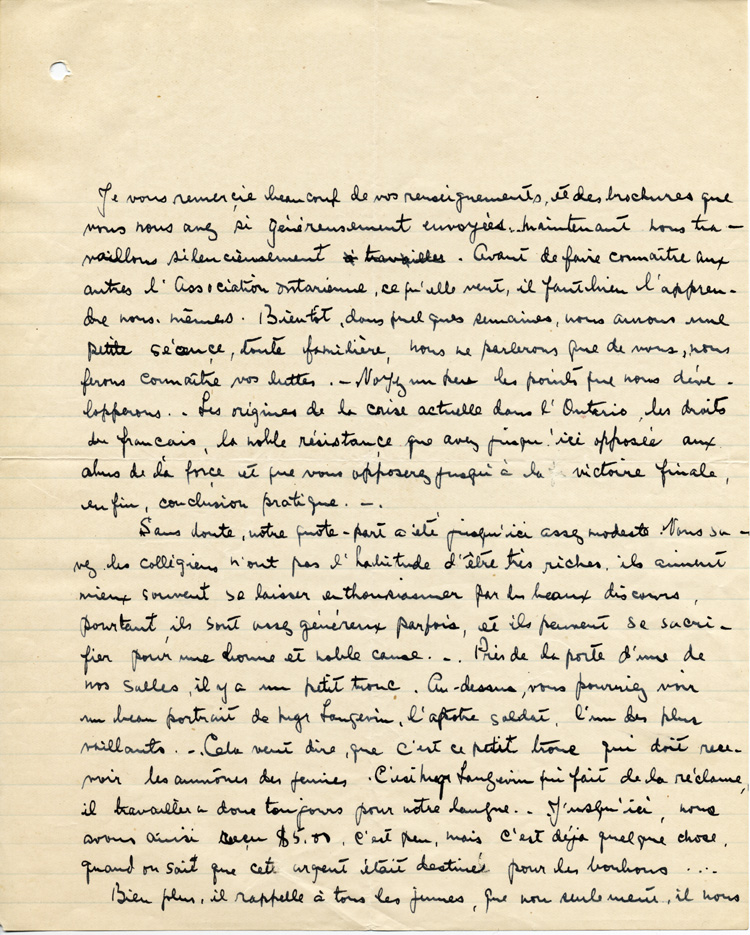 Je vous remercie beaucoup de vos renseignements, et des brochures que
vous nous avez si généreusement envoyées. maintenant nous tra-
vaillons silencieusement à travailler. Avant de faire connaître aux
autres l'Association ontarienne, ce qu'elle veut, il faut bien l'appren-
dre nous-mêmes. Bientôt, dans quelques semaines, nous aurons une
petite séance, toute familière, nous ne parlerons que de vous, nous
ferons connaître vos luttes. - Voyez un peu les points que nous déve-
lopperons. - Les origines de la crise actuelle dans l'Ontario, les droits
du français, la noble résistance que avez jusqu'ici opposée aux
abus de la force et que vous opposerez jusqu'à la victoire finale,
enfin, conclusion pratique. -.
Sans doute, notre quote-part a été jusqu'ici assez modeste. Vous sa-
vez, les collégiens n'ont pas l'habitude d'être très riches, ils aiment
mieux souvent se laisser enthousiasmer par les beaux discours,
pourtant ils sont assez généreux parfois, et ils peuvent se sacri-
fier pour une bonne et noble cause. -. Près de la porte d'une de
nos salles, il y a un petit tronc. Au-dessus, vous pourriez voir
un beau portrait de Mgr Langevin, l'apôtre soldat, l'un des plus
vaillants. -. Cela veut dire, que c'est ce petit tronc qui doit rece-
voir les aumônes des jeunes. C'est Mgr Langevin qui fait de la réclame,
il travaillera donc toujours pour notre langue. - Jusqu'ici, nous
avons ainsi reçu $5.00, c'est peu, mais c'est déjà quelque chose,
quand on sait que cet argent était destiné pour les bonbons ....
Bien plus, il rappelle à tous les jeunes, que non seulement, il nous